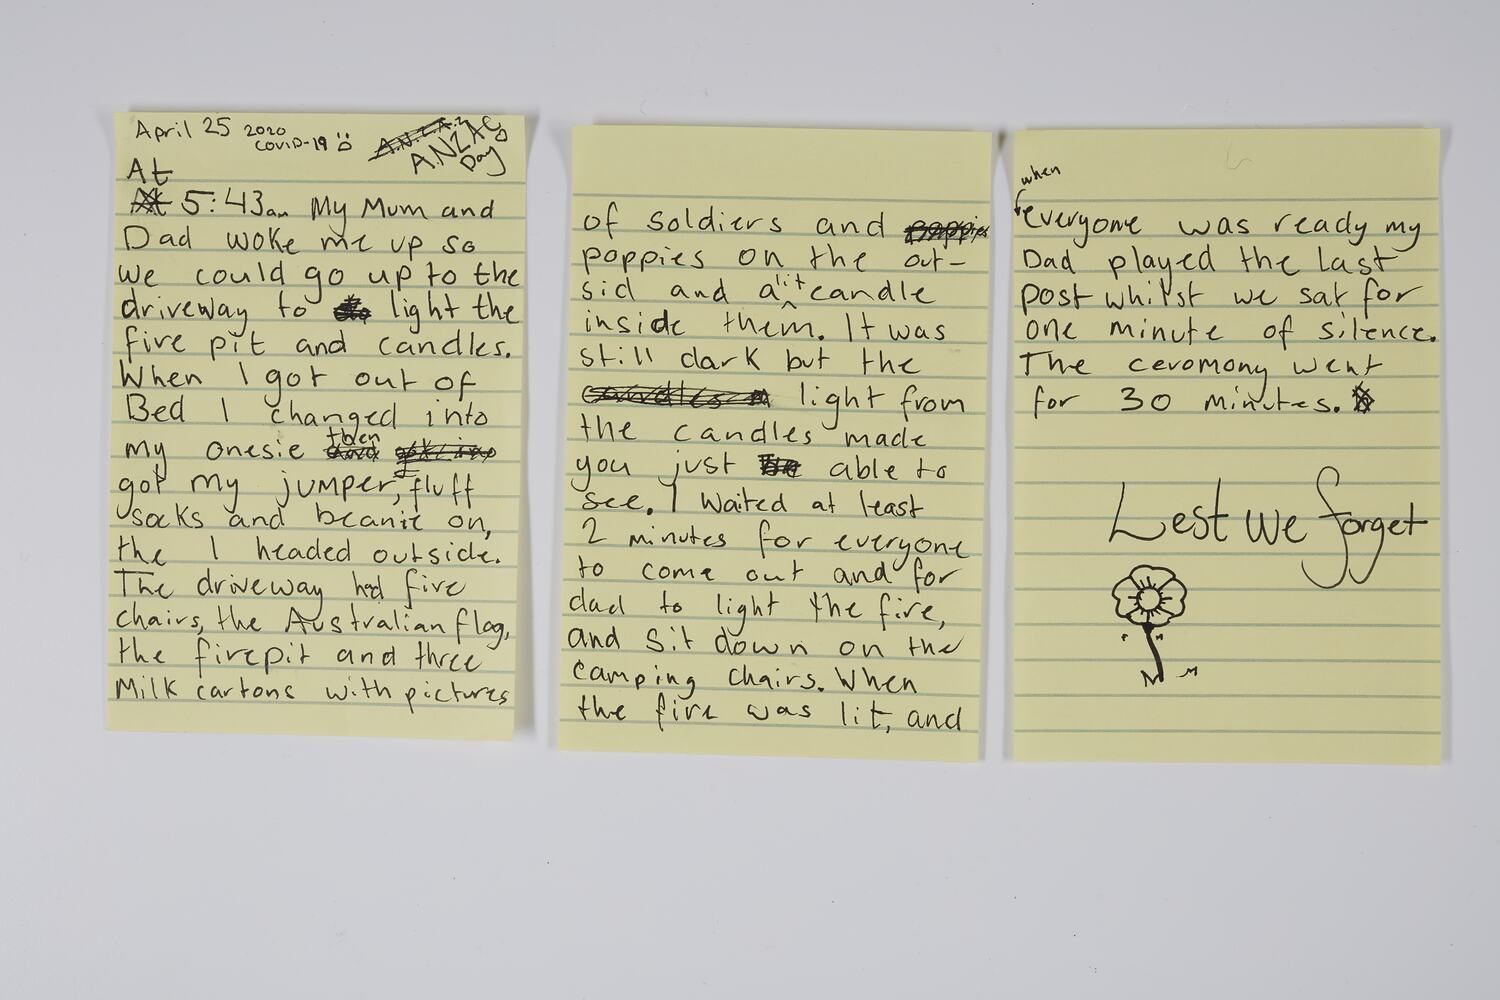 April 25 2020
COVID-19
A.N.Z.A.C
Day
At
5:43am My Mum and
Dad woke me up so
we could go up to the
driveway to light the
fire pit and candles.
When I got out of
Bed I changed into
my onesie then
got my jumper, fluff
socks and beanie on,
the I headed outside.
The driveway had five
chairs, the Australian flag,
the firepit and three
Milk cartons with pictures
of soldiers and
poppies on the out-
sid and a lit candle
inside them. It was
still dark but the
light from
the candles made
you just able to
see. I waited at least
2 minutes for everyone
to come out and for
dad to light the fire,
and sit down on the
camping chairs. When
the fire was lit, and
when
everyone was ready my
Dad played the last
post whilst we sat for
one minute of silence.
The ceromony went
for 30 minutes.
Lest we forget